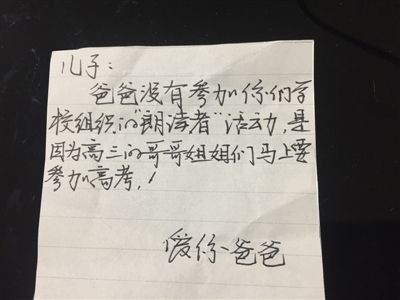 儿子：
爸爸没有参加你们学
校组织的“朗读者”活动，是
因为高三的哥哥姐姐们马上要
参加高考，！
爱你-爸爸